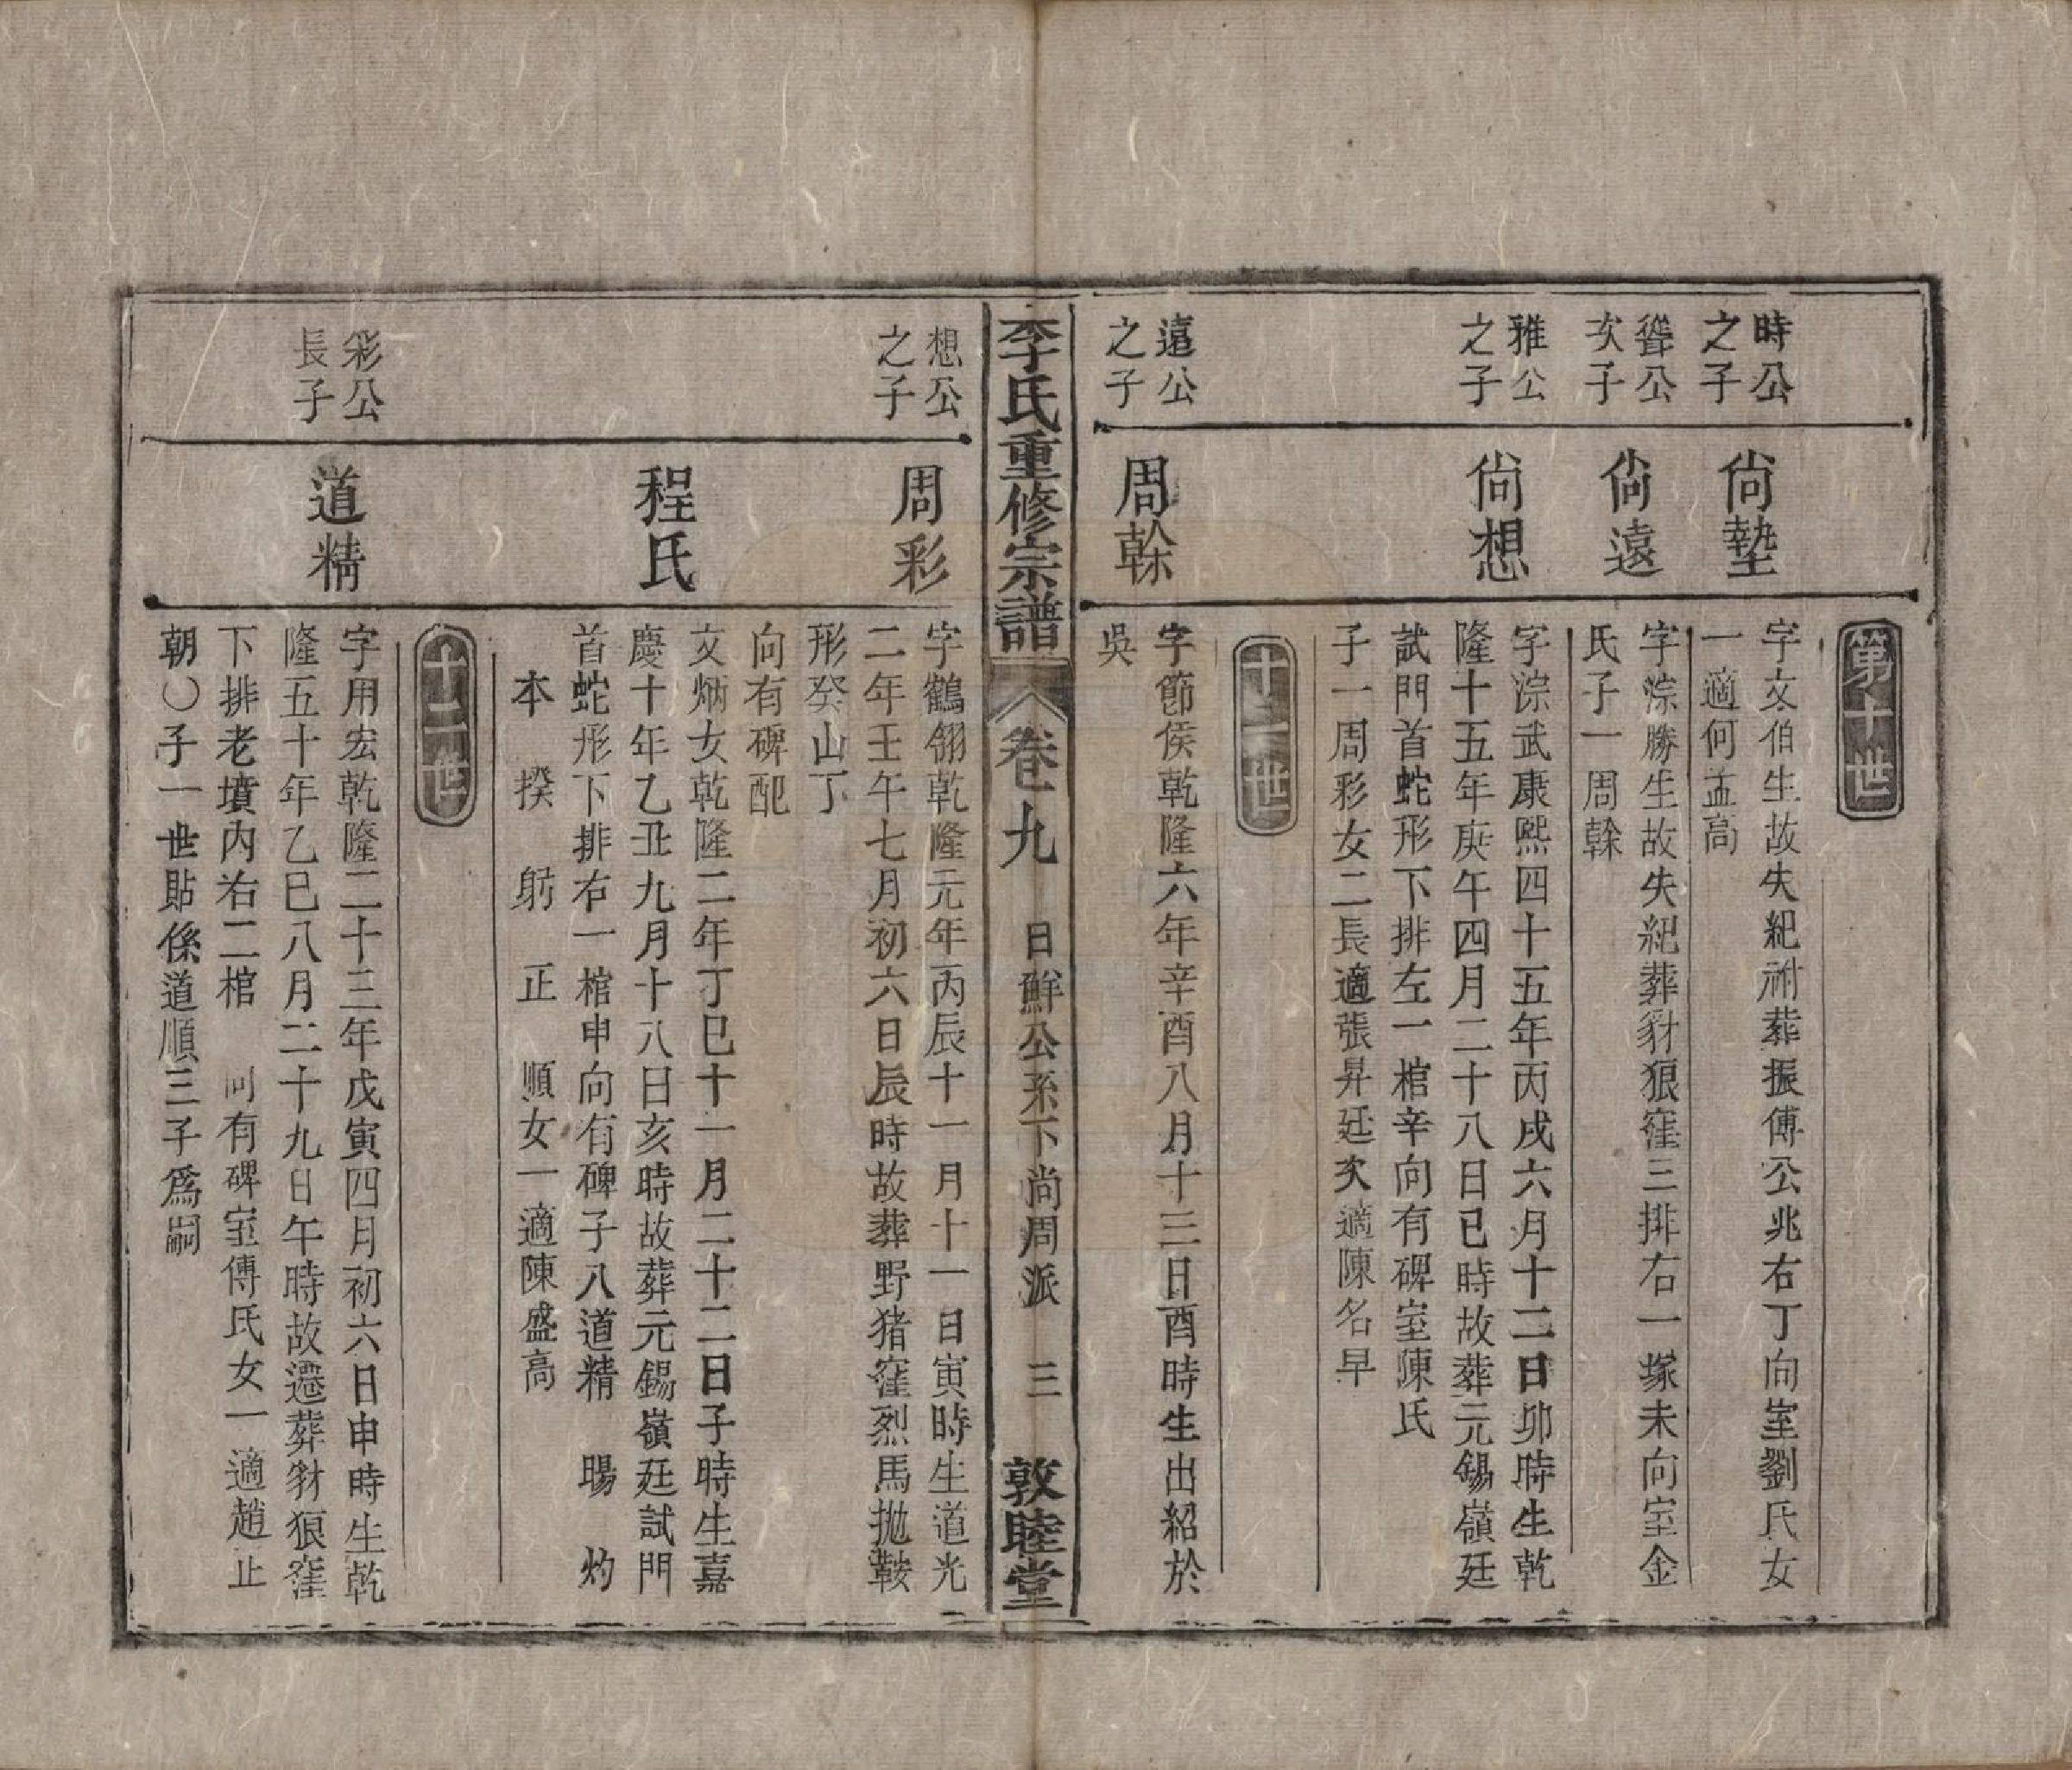 第十世
時公之子
尙墊
字文伯生故失紀祔葬振傳公兆右丁向室劉氏女
一適何孟高
聳公次子
尙遠
字淙勝生故失紀葬豺狼窪三排右一塚未向室金
氏子一周榦
雅公之子
尙想
字淙武康熙四十五年丙戌六月十二日卯時生乾
隆十五年庚午四月二十八日巳時故葬元錫嶺廷
試門首蛇形下排左一棺辛向有碑室陳氏
子一周彩女二長適張昇廷次適陳名早
十一世
遠公之子
周榦
字節侯乾隆六年辛酉八月十三日酉時生出紹於
吳
李氏重修宗譜 卷九 日鮮公系下尚周派 三 敦睦堂
想公之子
周彩
字鶴翎乾隆元年丙辰十一月十一日寅時生道光
二年壬午七月初六日辰時故葬野猪窪烈馬拋鞍
形癸山丁
向有碑配
程氏
文炳女乾隆二年丁巳十一月二十二日子時生嘉
慶十年乙丑九月十八日亥時故葬元錫嶺廷試門
首蛇形下排右一棺申向有碑子八道精 暘 灼
本 揆 躬 正 順女一適陳盛高
十二世
彩公長子
道精
字用宏乾隆二十三年戊寅四月初六日申時生乾
隆五十年乙巳八月二十九日午時故遷葬豺狼窪
下排老墳內右二棺 向有碑室傅氏女一適趙止
朝〇子一世貼係道順三子爲嗣